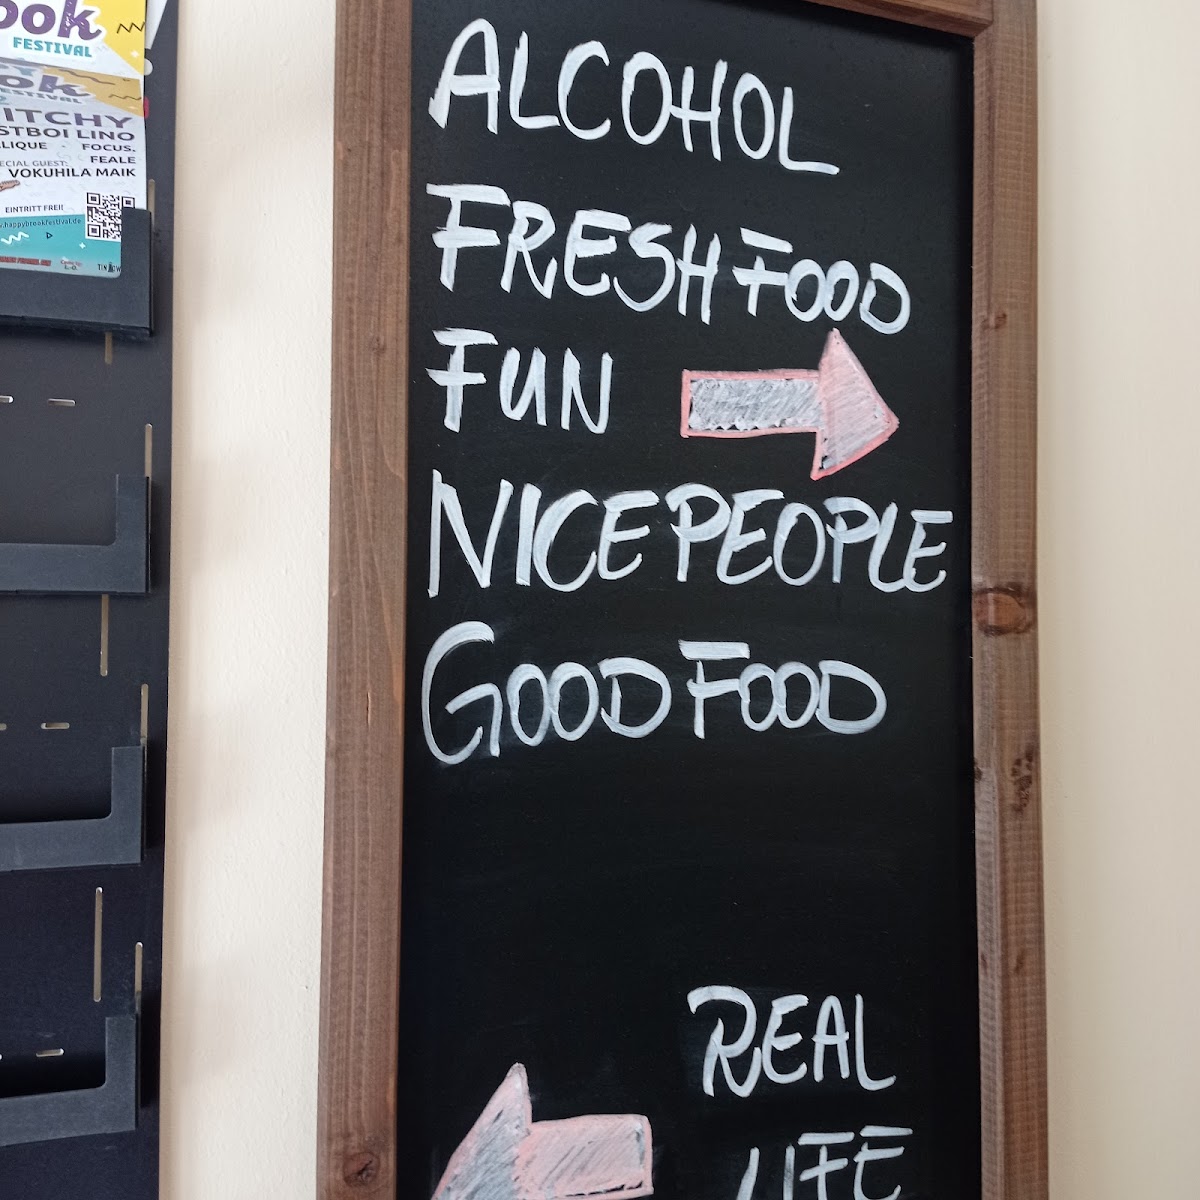 ook
FESTIVAL
ok
ESTIVAL
ITCHY
STBOI LINO
LIQUE - FOCUS.
ECIAL GUEST: FEALE
VOKUHILA MAIK
EINTRITT FREI!
w.happybrookfestival.de
ALCOHOL
FRESH FOOD
FUN
NICE PEOPLE
GOOD FOOD
REAL
LIFE